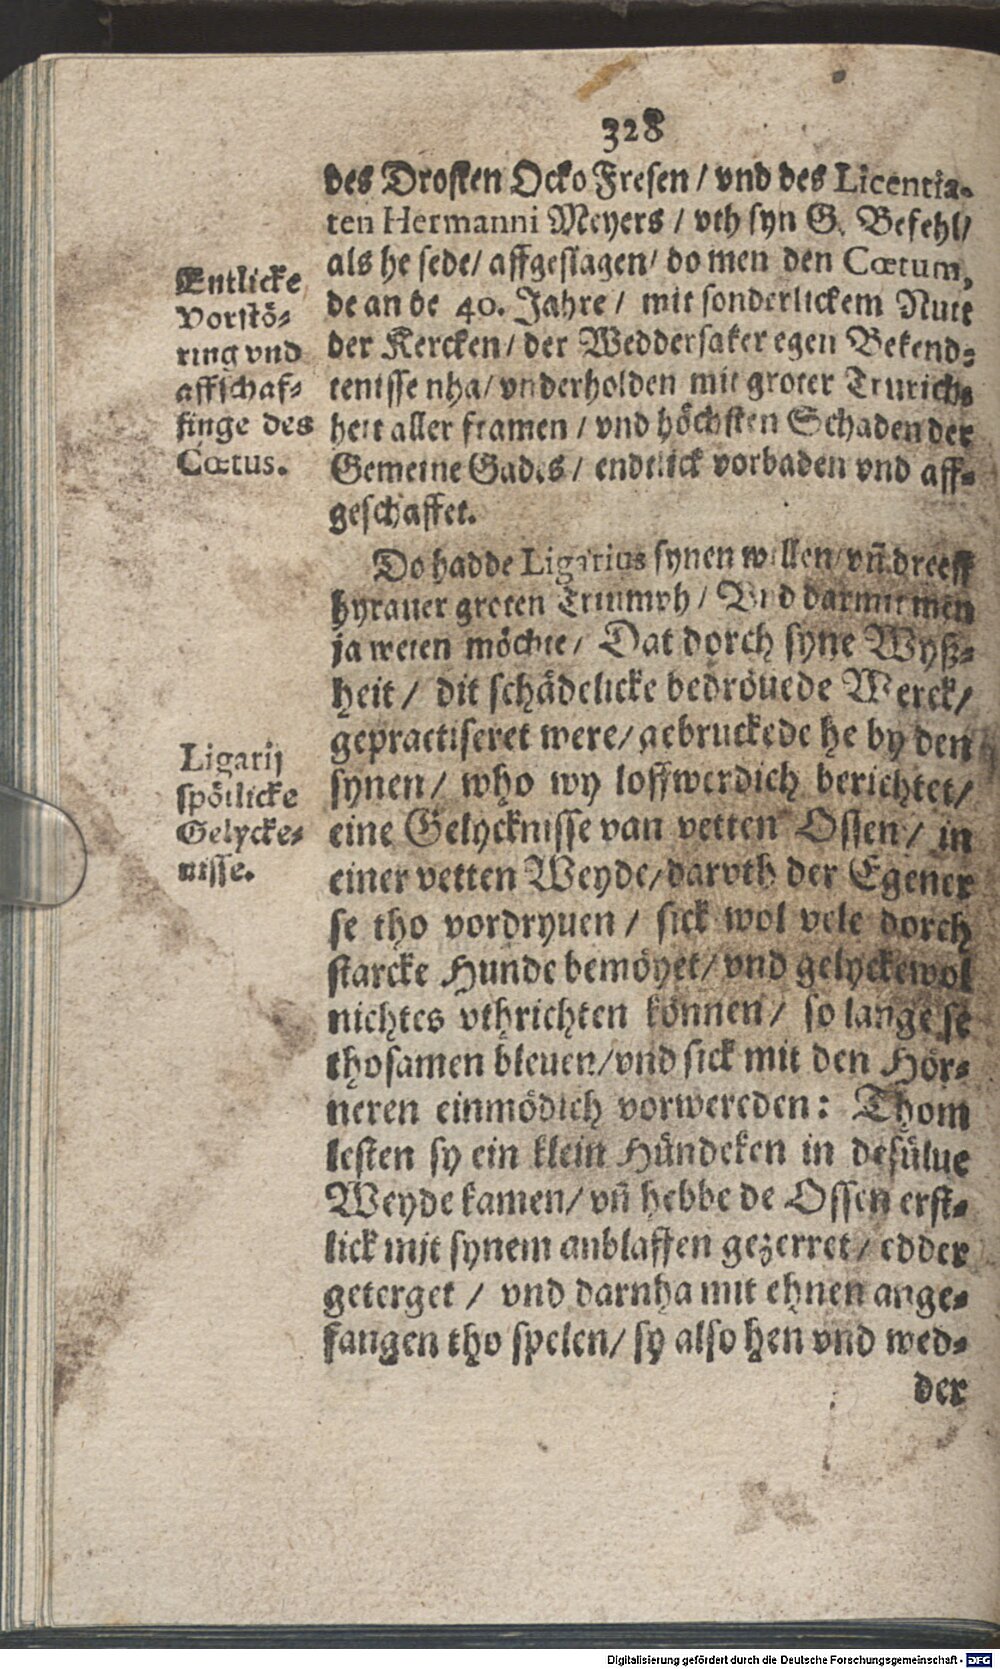 328
des Drosten Ocko Fresen / vnd des Licentia-
ten Hermanni Meyers / vth syn G. Befehl/
als he sede/ affgeslagen/ do men den Cœtum,
de an de 40. Jahre / mit sonderlickem Nutt
der Kercken/ der Weddersaker egen Bekend-
tenisse nha/ vnderholden mit groter Trurich-
heit aller framen / vnd höchsten Schaden der
Gemeine Gades / endtlick vorbaden vnd aff-
geschaffet.
Entlicke
Vorstö-
ring vnd
affschaf-
finge des
Cœtus.
Do hadde Ligarius synen willen/ vn̄ dreeff
hyrauer groten Triumph / Vnd darmit men
ja weten möchte / Dat dorch syne Wyß-
heit / dit schädelicke bedröuede Werck/
gepractiseret were/ gebruckede he by den
synen / who wy loffwerdich berichtet/
eine Gelycknisse van vetten Ossen / in
einer vetten Weyde/ darvth der Egener
se tho vordryuen / sick wol vele dorch
starcke Hunde bemöyet/ vnd gelyckewol
nichtes vthrichten können / so lange se
thosamen bleuen/ vnd sick mit den Hör-
neren einmödich vorwereden: Thom
lesten sy ein klein Hündeken in desülue
Weyde kamen/ vn̄ hebbe de Ossen erst-
lick mit synem anblaffen gezerret / edder
geterget / vnd darnha mit ehnen ange-
fangen tho spelen/ sy also hen vnd wed-
der
Ligarij
spötlicke
Gelycke-
nisse.
Digitalisierung gefördert durch die Deutsche Forschungsgemeinschaft - DFG